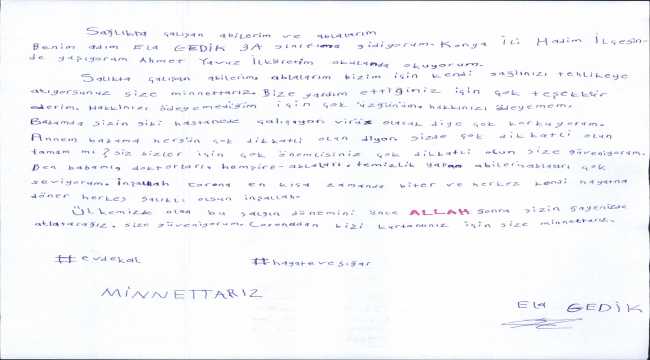 Sağlıkta çalışan abilerim ve ablalarım
Benim adım Ela GEDİK 3A sınıfına gidiyorum. Konya İli Hadim İlçesin-
de yaşıyoram Ahmet Yavuz İlköretim okulunda okuyorum.
Salıkta çalışan abilerim, ablalarım bizim için kendi sağlınızı tehlikeye
atıyorsunuz size minnettarız. Bize yardım ettiğiniz için çok teşekkür
ederim. Hakkınızı ödeyemediğim için çok üzgünüm. hakkınızı ödeyemem.
Babamda sizin gibi hastanede çalışıyor virüs olacak diye çok korkuyorum.
Annem babama hergün çok dikkatli olun diyor sizde çok dikkatli olun
tamam mı? Siz bizler için çok önemlisiniz çok dikkatli olun size güveniyorum.
Ben babamla doktorları, hemşire ablaları, temizlik yapan abileri ablaları çok
seviyorum. İnşallah corona en kısa zamanda biter ve herkez kendi hayatına
döner herkes salıklı olsun inşallah.
Ülkemizde olan bu salgın dönemini önce ALLAH sonra sizin sayenizde
atlatacağız. size güveniyorum. Coronadan bizi kurtarınız için size minnettarız.
#evdekal #hayatevesığar
MİNNETTARIZ
Ela GEDİK